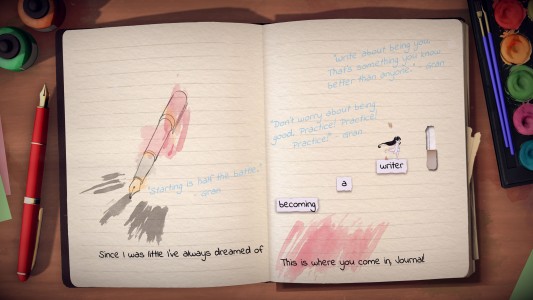 "Starting is half the battle."
- Gran
Since I was little I've always dreamed of
"Write about being you.
That's something you know
better than anyone." - Gran
"Don't worry about being
good. Practice! Practice!
Practice!" - Gran
writer
a
becoming
This is where you come in, Journal